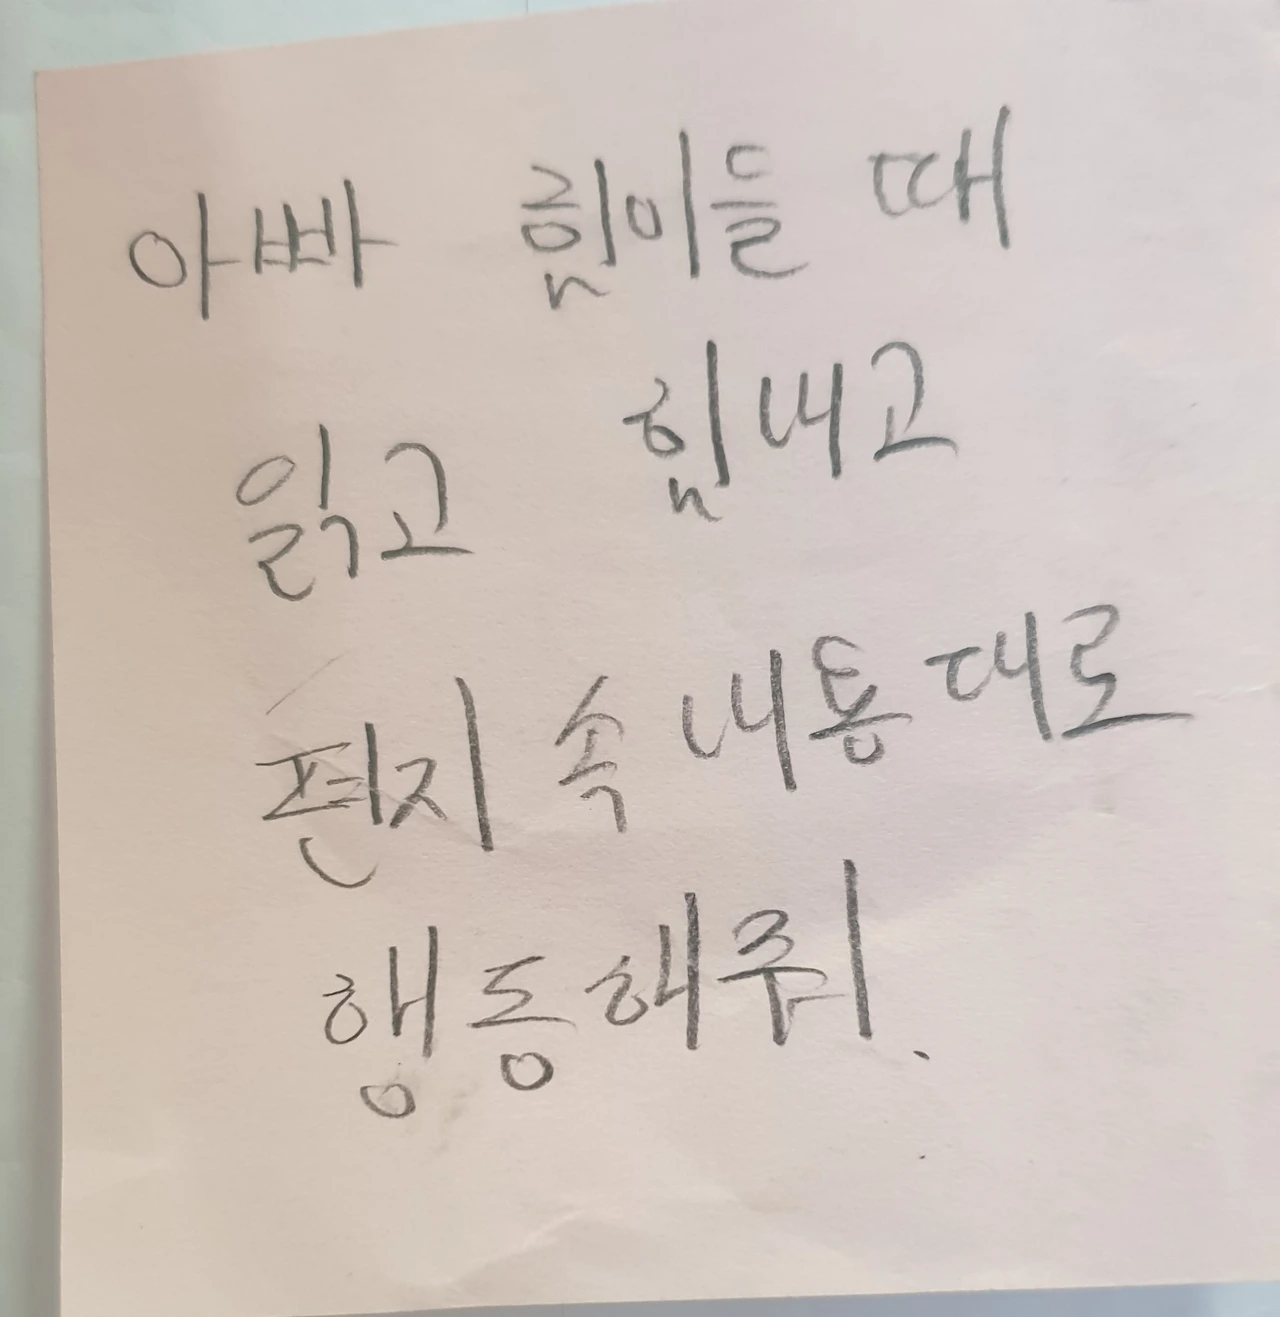 아빠 힘이들 때
읽고 힘내고
편지 속 내용대로
행동해줘.